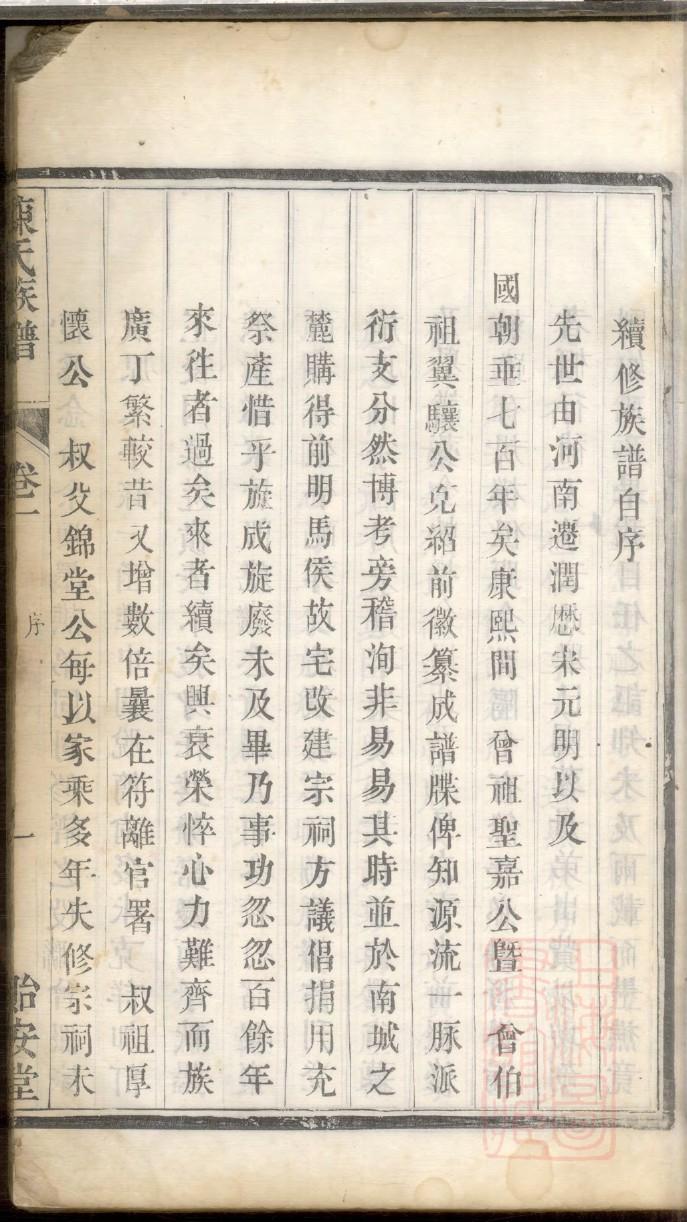 續修族譜自序
先世由河南遷潤歷宋元明以及
國朝垂七百年矣康熙間　曾祖聖嘉公曁　曾伯
祖翼驤公克紹前徽纂成譜牒俾知源流一脉派
衍支分然博考旁稽洵非易易其時並於南城之
麓購得前明馬侯故宅改建宗祠方議倡捐用充
祭產惜乎旋成旋廢未及畢乃事功忽忽百餘年
來徃者過矣來者續矣興衰榮悴心力難齊而族
廣丁繁較昔又增數倍曩在符離官署　叔祖厚
懷公　叔父錦堂公每以家乘多年失修宗祠未
陳氏族譜　卷一　序　一　怡安堂